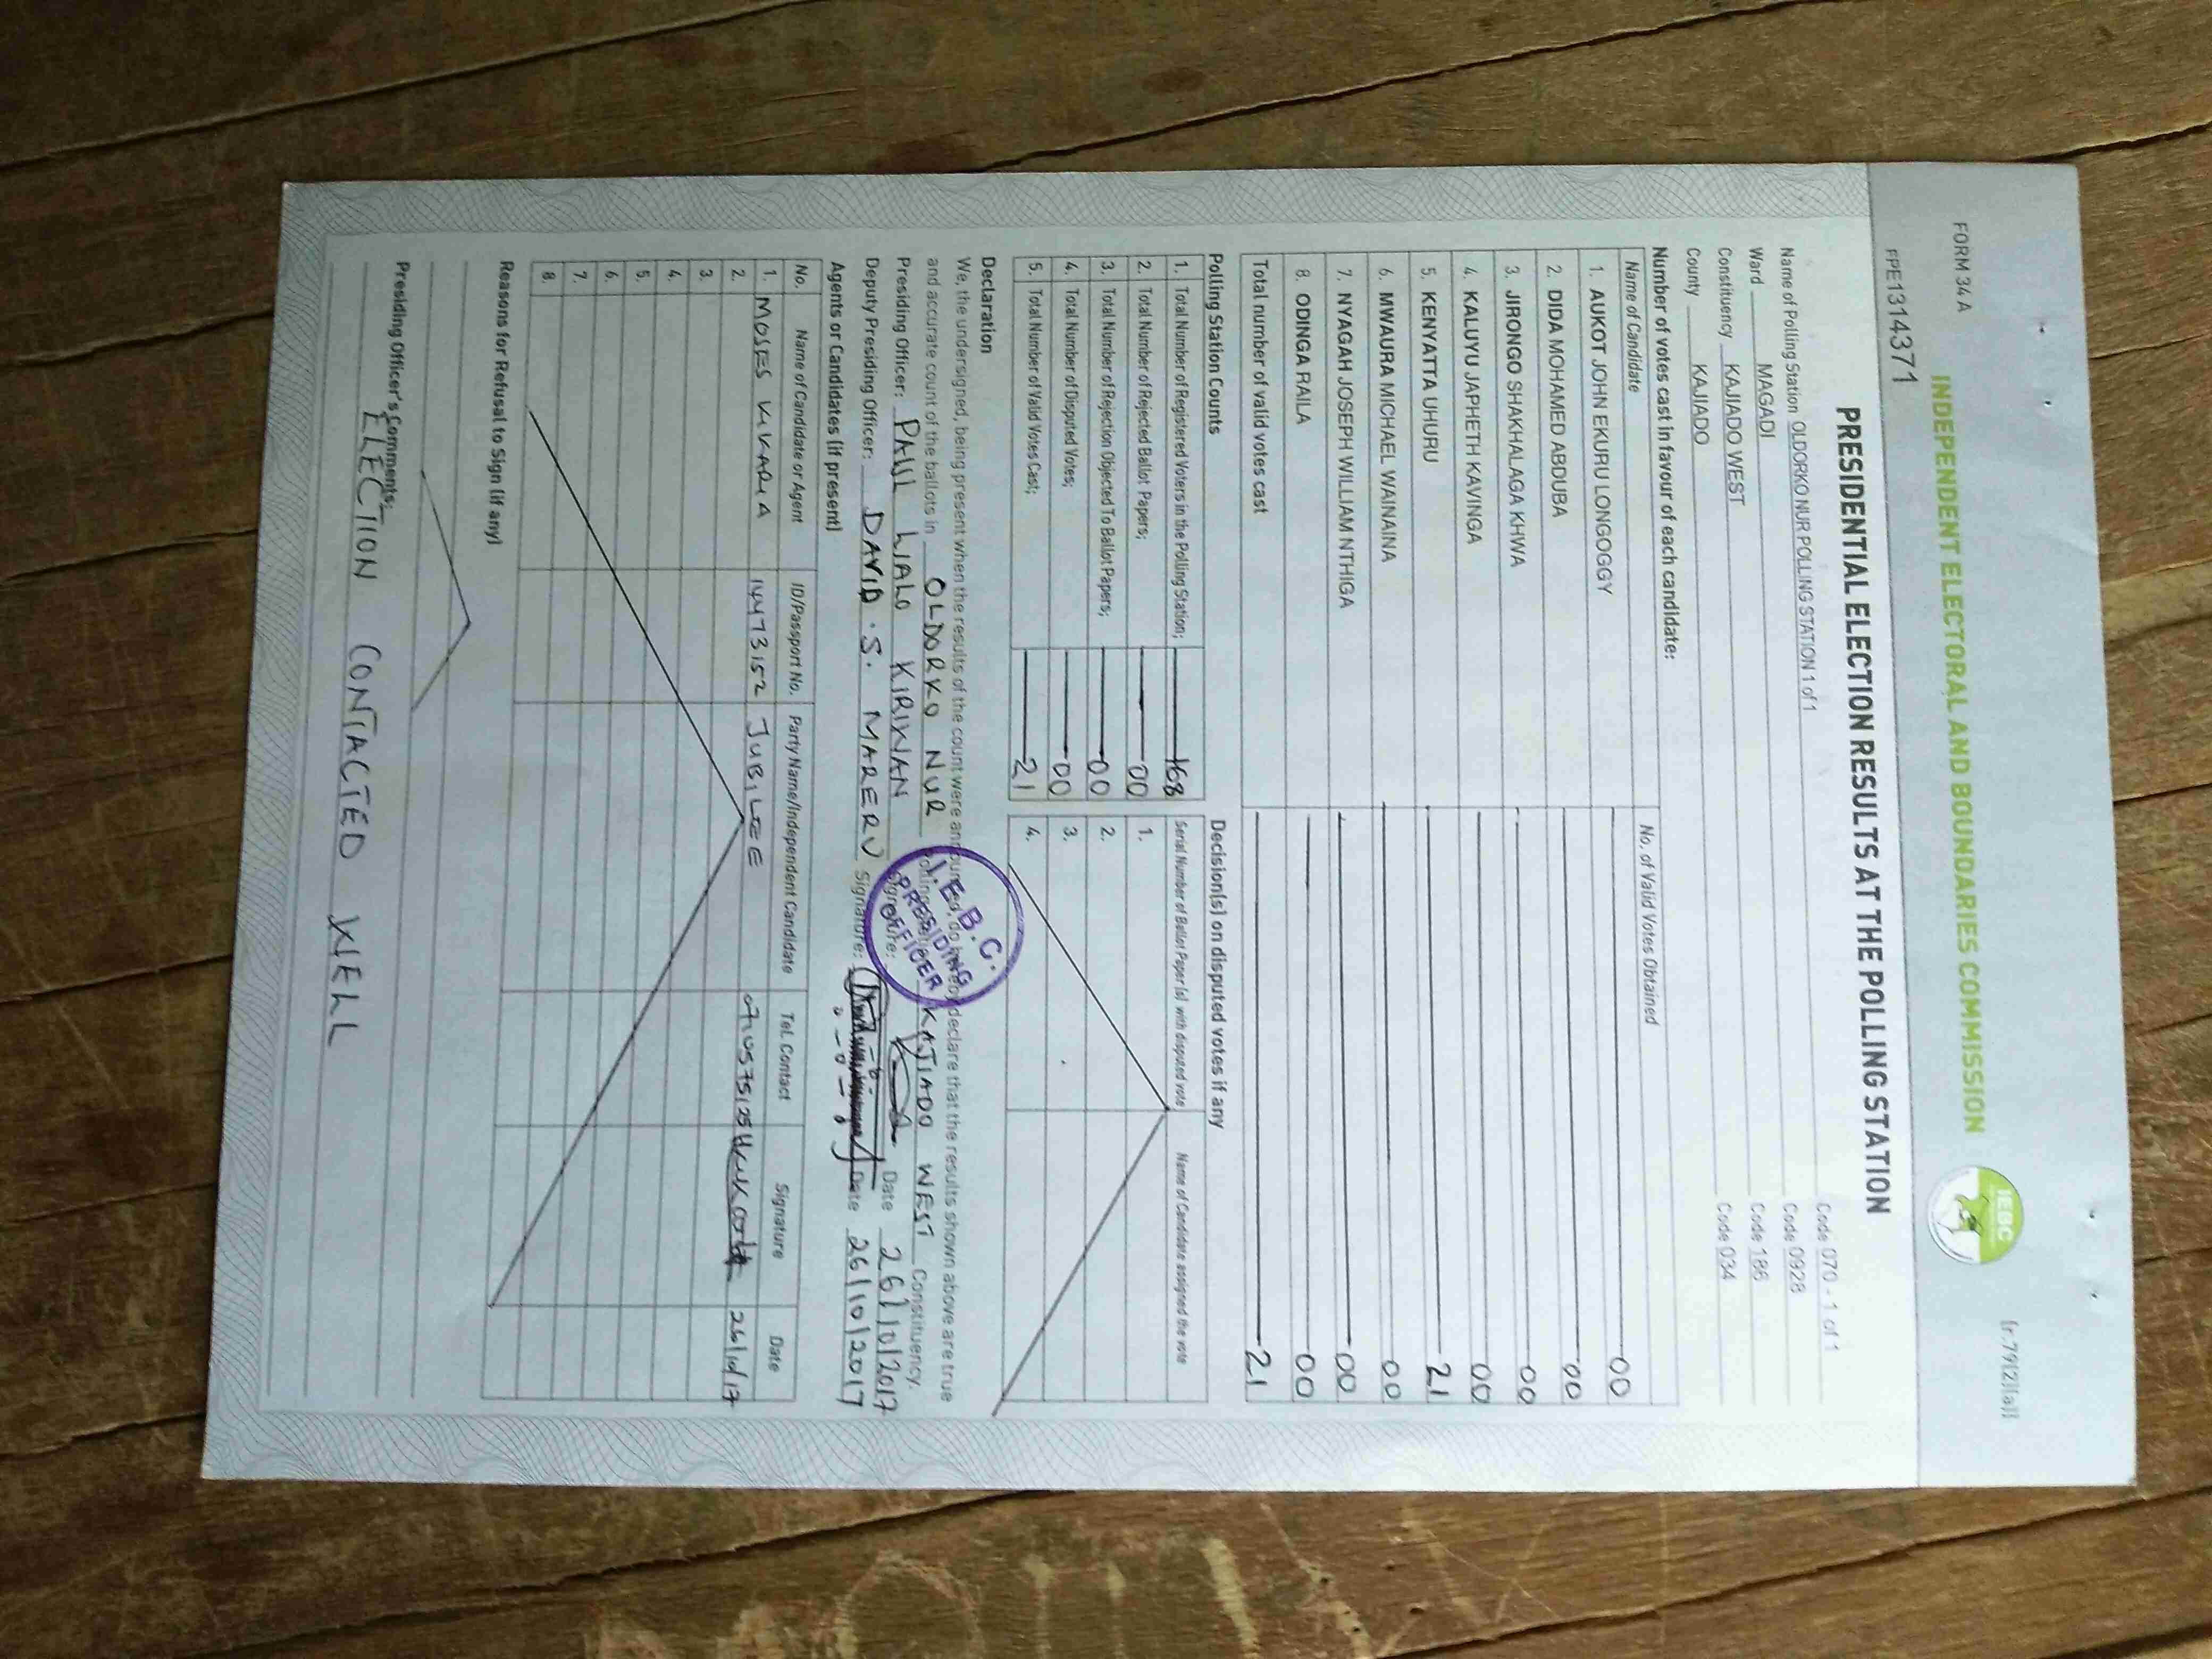 FORM 34 A
[r.79(2)(a)]
INDEPENDENT ELECTORAL AND BOUNDARIES COMMISSION
IEBC
FPE1314371
PRESIDENTIAL ELECTION RESULTS AT THE POLLING STATION
Name of Polling Station OLDORKO NUR POLLING STATION 1 of 1 Code 070 - 1 of 1
Ward MAGADI Code 0928
Constituency KAJIADO WEST Code 186
County KAJIADO Code 034
Number of votes cast in favour of each candidate:
Name of Candidate No. of Valid Votes Obtained
1. AUKOT JOHN EKURU LONGOGGY 00
2. DIDA MOHAMED ABDUBA 00
3. JIRONGO SHAKHALAGA KHWA 00
4. KALUYU JAPHETH KAVINGA 00
5. KENYATTA UHURU 21
6. MWAURA MICHAEL WAINAINA 00
7. NYAGAH JOSEPH WILLIAM NTHIGA 00
8. ODINGA RAILA 00
Total number of valid votes cast 21
Polling Station Counts
1. Total Number of Registered Voters in the Polling Station; 168
2. Total Number of Rejected Ballot Papers; 00
3. Total Number of Rejection Objected To Ballot Papers; 00
4. Total Number of Disputed Votes; 00
5. Total Number of Valid Votes Cast; 21
Decision(s) on disputed votes if any
Serial Number of Ballot Paper (s) with disputed vote Name of Candidate assigned the vote
1.
2.
3.
4.
Declaration
We, the undersigned, being present when the results of the count were announced, do hereby declare that the results shown above are true
and accurate count of the ballots in OLDORKO NUR polling station KAJIADO WEST Constituency.
Presiding Officer: PAUL LIALO KIRINAN Signature: Date 26/10/2017
Deputy Presiding Officer: DAVID . S. MARERU Signature: Date 26/10/2017
I.E.B.C.
PRESIDING
OFFICER
Agents or Candidates (if present)
No. Name of Candidate or Agent ID/Passport No. Party Name/Independent Candidate Tel. Contact Signature Date
1. MOSES 14473152 JUBILEE 26/10/17
2.
3.
4.
5.
6.
7.
8.
Reasons for Refusal to Sign (if any)
Presiding Officer's Comments;
ELECTION CONTACTED WELL